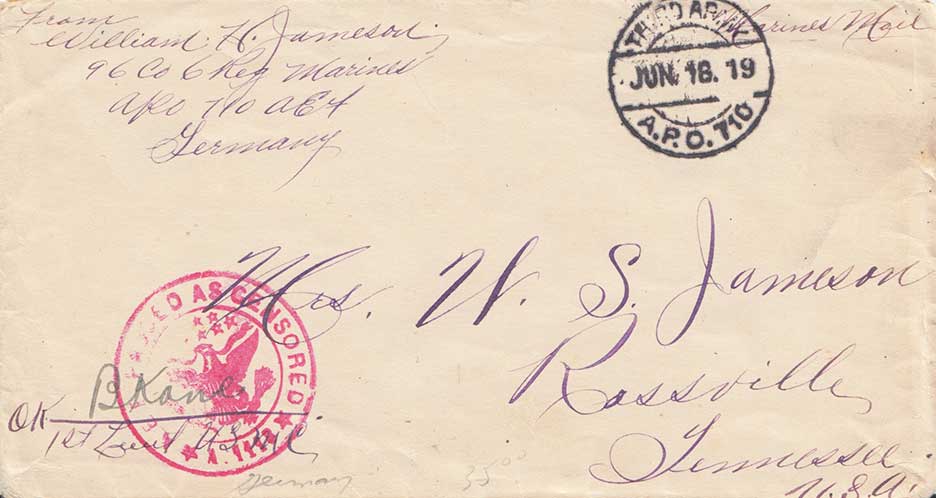 From
William H. Jameson
96 Co 6 Reg Marines
APO 710 AEF
Germany
Marines Mail
THIRD ARMY
JUN. 18. 19
A.P.O. 710
Mrs. W. S. Jameson
Rossville
Tennessee
U.S.A.
AS CENSORED
A.
OK
B Kane
1st Lieut U.S.M.C.
Germany
3500